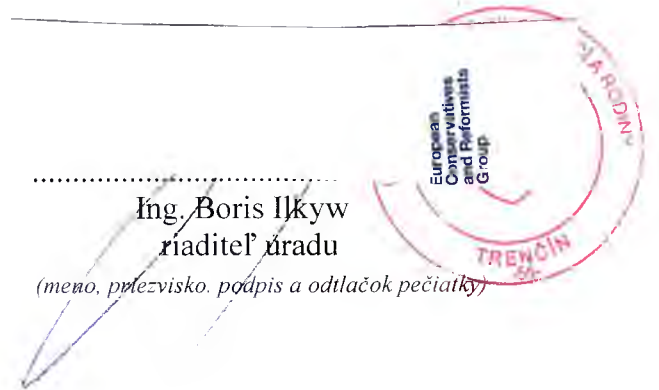 European
Conservatives
and Reformists
Group
A RODINY
TRENČÍN
Ing. Boris Ilkyw
riaditeľ úradu
(meno, priezvisko, podpis a odtlačok pečiatky)